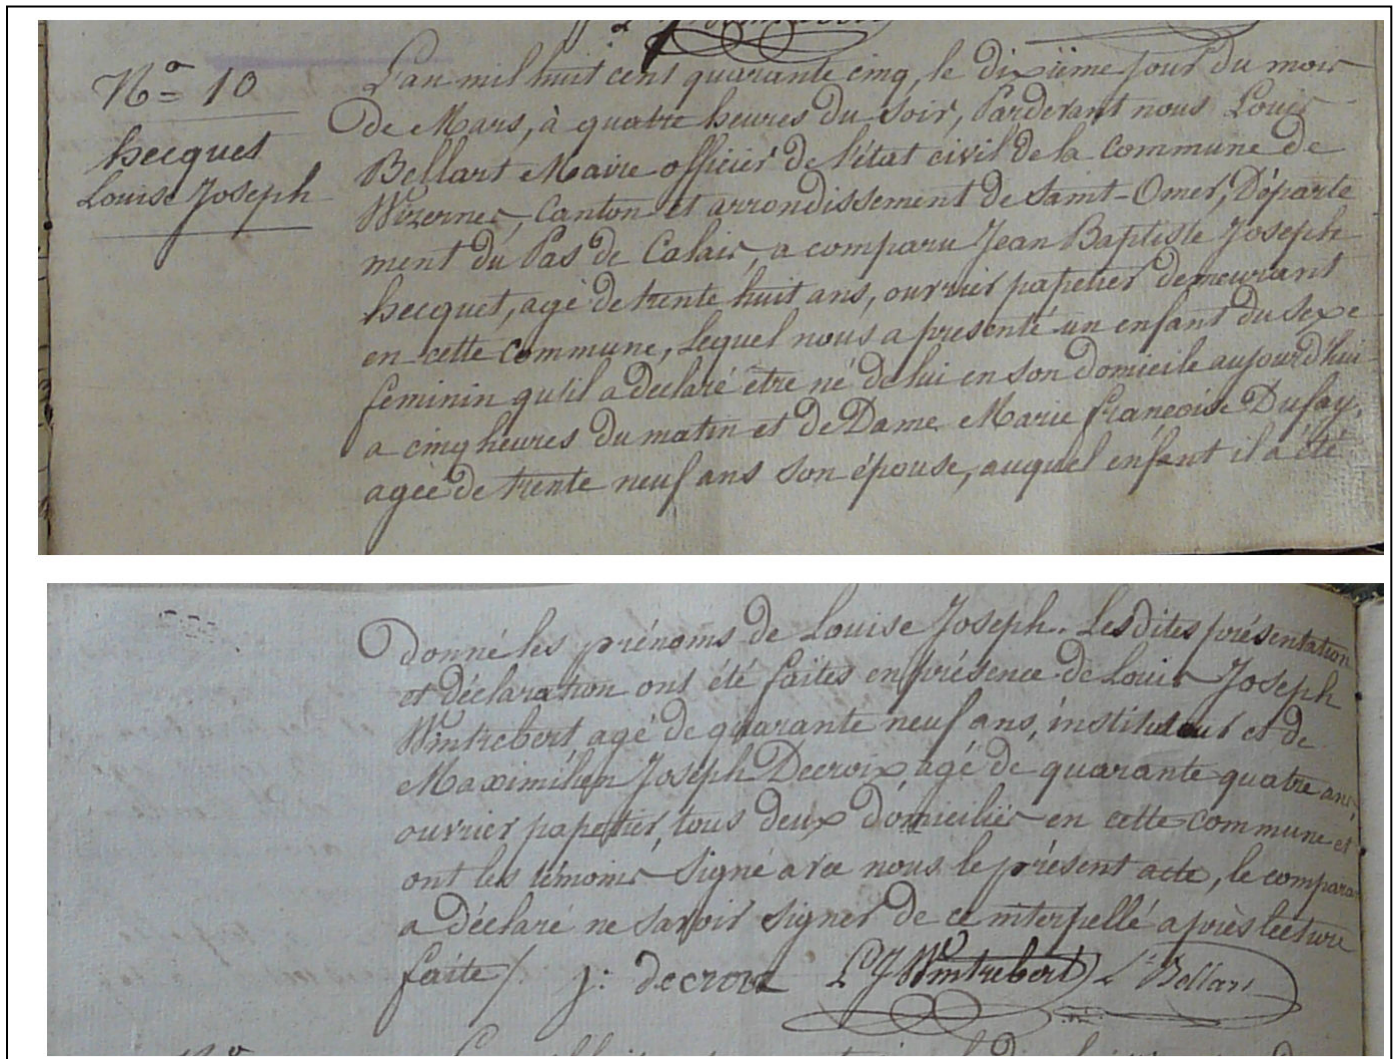 N° 10
hecquet
Louise Joseph
L'an mil huit cent quarante cinq, le dixiïme jour du mois
de Mars, à quatre heures du soir, Pardevant nous Louis
Bellart Maire officier de l'état civil de la Commune de
Wizernes, Canton et arrondissement de Saint-Omer, Départe
ment du Pas de Calais, a comparu Jean Baptiste Joseph
hecquet, agé de trente huit ans, ouvrier papetier demeurant
en cette Commune, Lequel nous a présenté un enfant du sexe
féminin qu'il a déclaré être né de lui en son domicile aujourd'hui
a cinq heures du matin et de Dame Marie françoise Dufay,
agée de trente neuf ans son épouse, auquel enfant il a été
donné les prénoms de Louise Joseph. Les dites présentation
et déclaration ont été faites en présence de Louis Joseph
Wintrebert agé de quarante neuf ans, instituteur et de
Maximilien Joseph Decroix agé de quarante quatre ans
ouvrier papetier, tous deux domiciliés en cette commune et
ont les témoins signé avec nous le présent acte, le compara
a déclaré ne savoir signer de ce interpellé après lecture
faite /. j: decroix L J Wintrebert L. Bellart